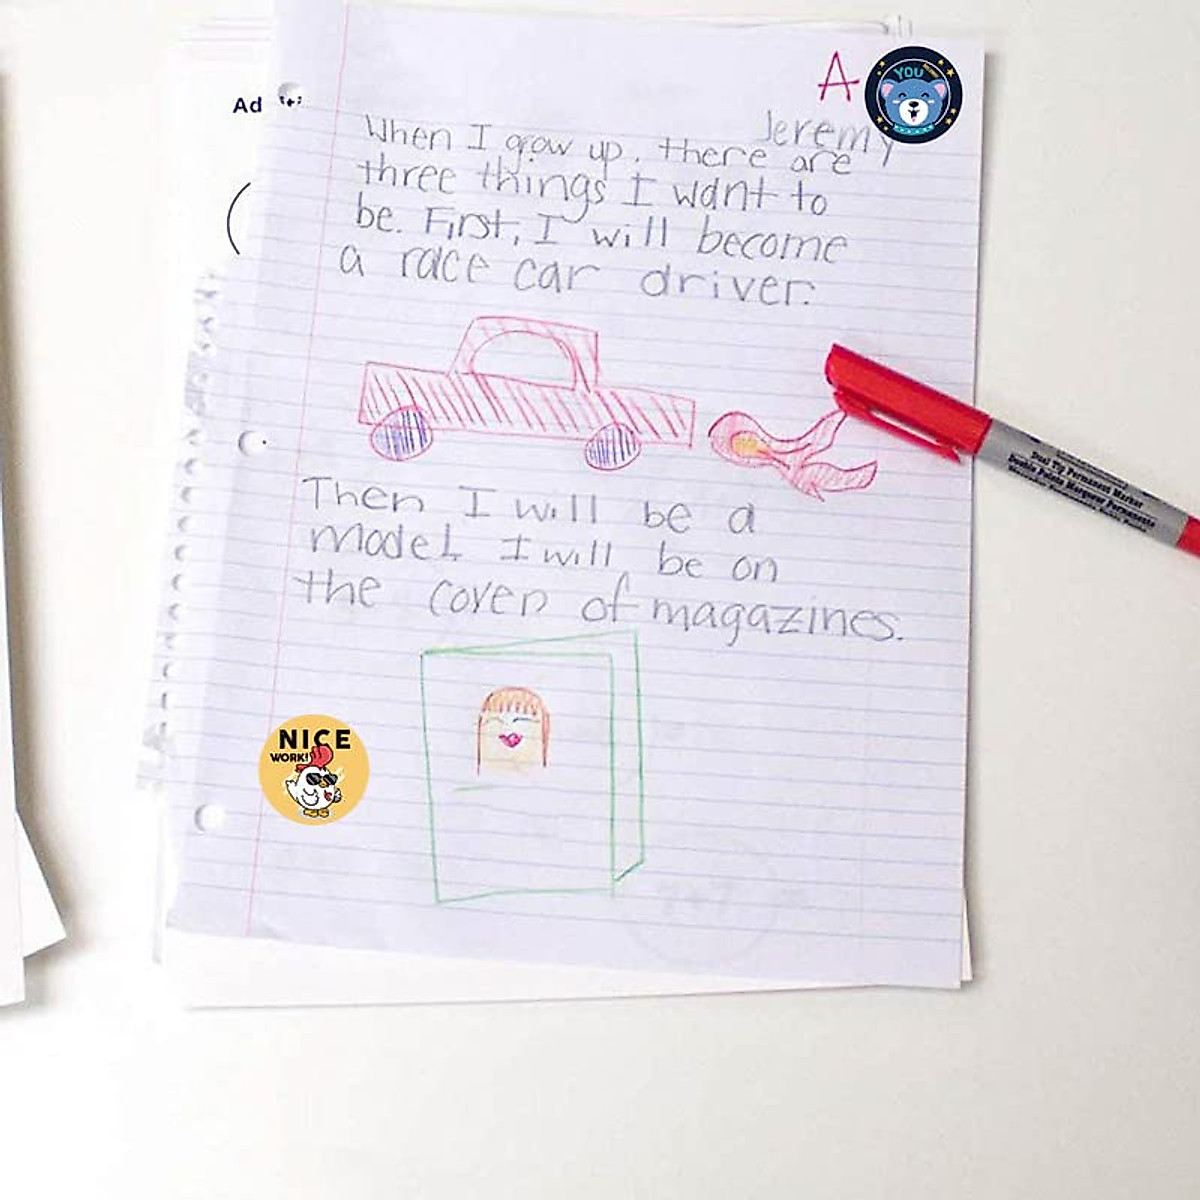 A
YOU
Jeremy
When I grow up, there are
three things I want to
be. First, I will become
a race car driver.
Then I will be a
model. I will be on
the cover of magazines.
NICE
WORK!
Ad
Dual Tip Permanent Marker